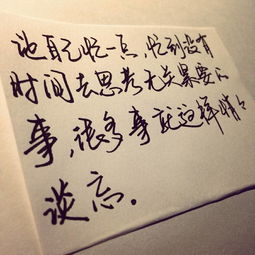 让自己忙一点,忙到没有
时间去思考无关紧要的
事,很多事就这样悄々
淡忘.